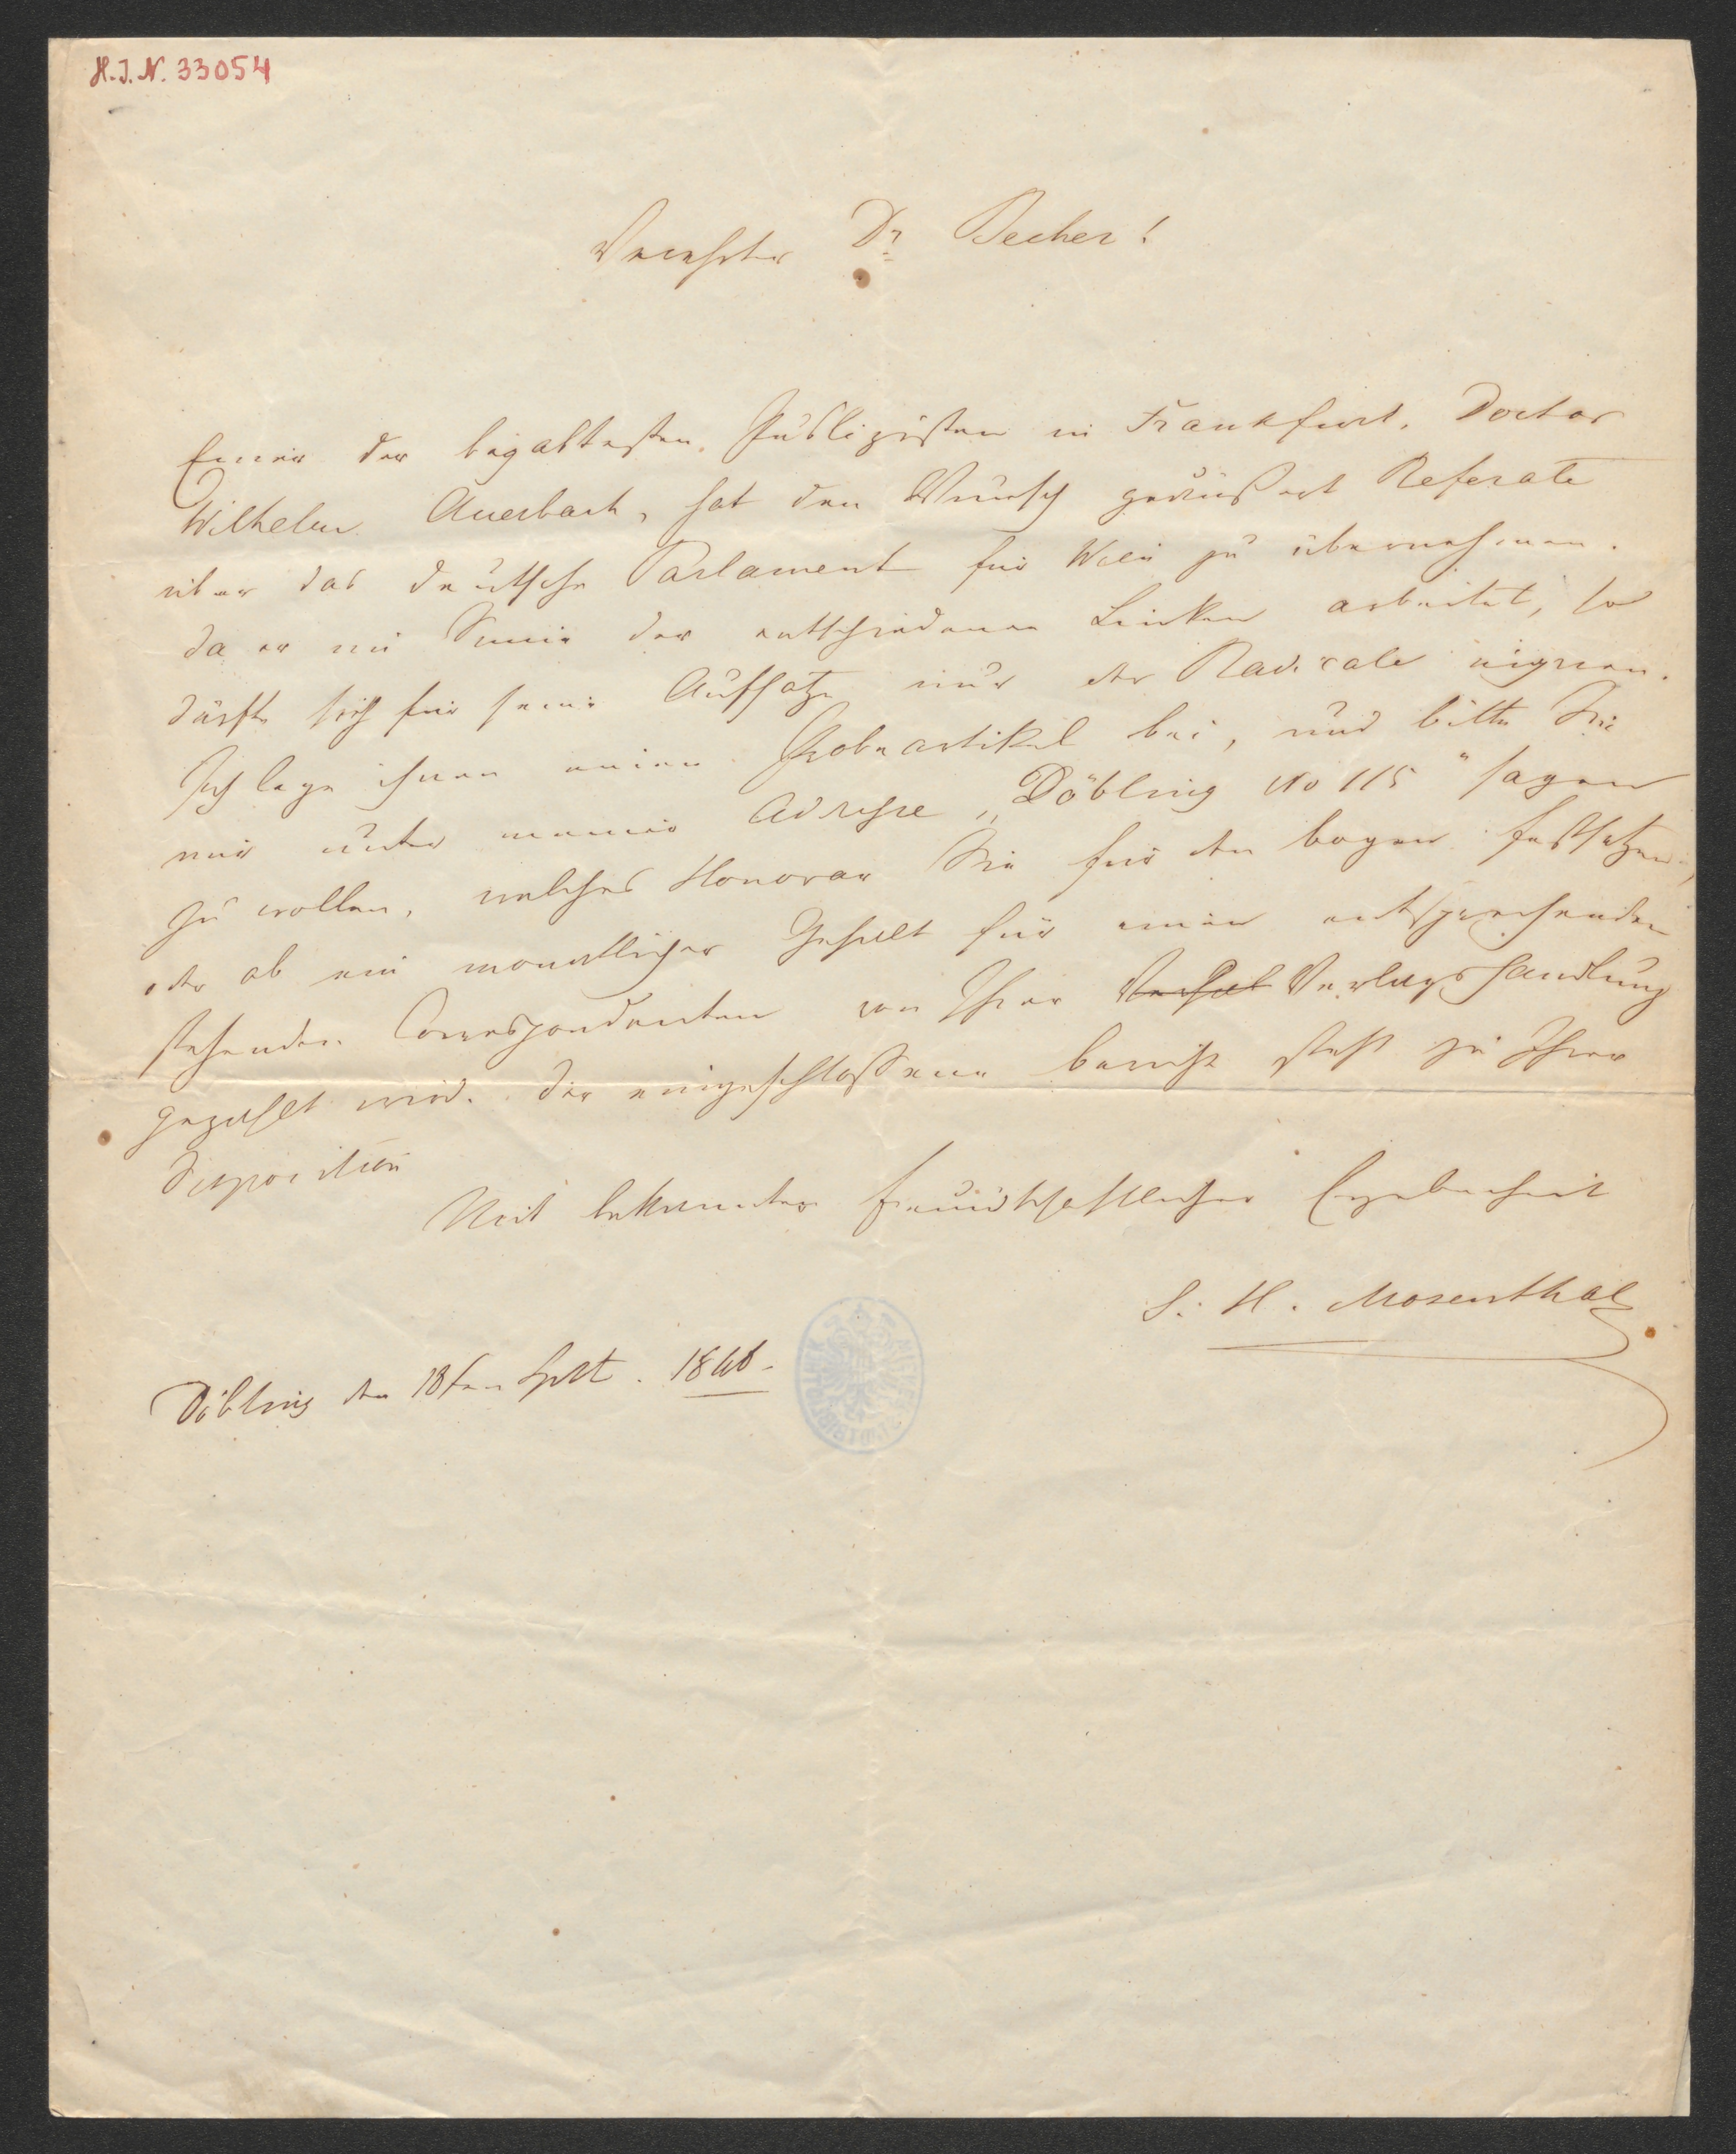 H.I.N. 33054
Verehrter Dr Becher!
Einer der begabtesten Publizisten in Frankfurt, Doctor
Wilhelm Auerbach, hat den Wunsch geäußert Referate
über das deutsche Parlament für Wien zu übernehmen.
da er im Sinne der entschiedenen Linken arbeitet, so
dürfte sich für seine Aufsätze nur der Radicale eignen.
Ich lege ihnen einen Probeartikel bei, und bitte Sie
mir unter meiner Adresse „Döbling No 115" sagen
zu wollen, welches Honorar Sie für den bogen festsetzen,
oder ob ein monatlicher Gehalt für einen entsprechenden
stehenden Correspondenten von Ihrer Verlagshandlung
gezahlt wird. Der eingeschloßene bericht steht zu Ihrer
disposition
Mit bekannter freundschaftlicher Ergebenheit
S. H. Mosenthal
Döbling den 18ten Sptt. 1848.